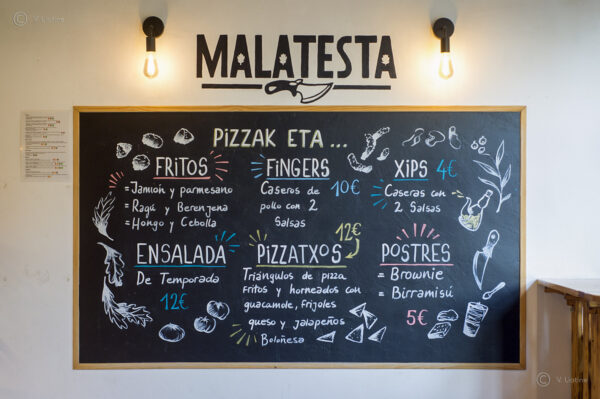 © V. Liatine
MALATESTA
PiZZAK ETA ...
FRiTOS
= Jamón y parmesano
= Ragú y Berenjena
= Hongo y Cebolla
FiNGERS
Caseros de
pollo con 2
Salsas
10€
XiPS 4€
Caseras con
2 Salsas
ENSALADA
De Temporada
12€
PiZZATXOS
12€
Triángulos de pizza
fritos y horneados con
guacamole, frijoles
queso y jalapeños
Boloñesa
POSTRES
= Brownie
= Birramisú
5€